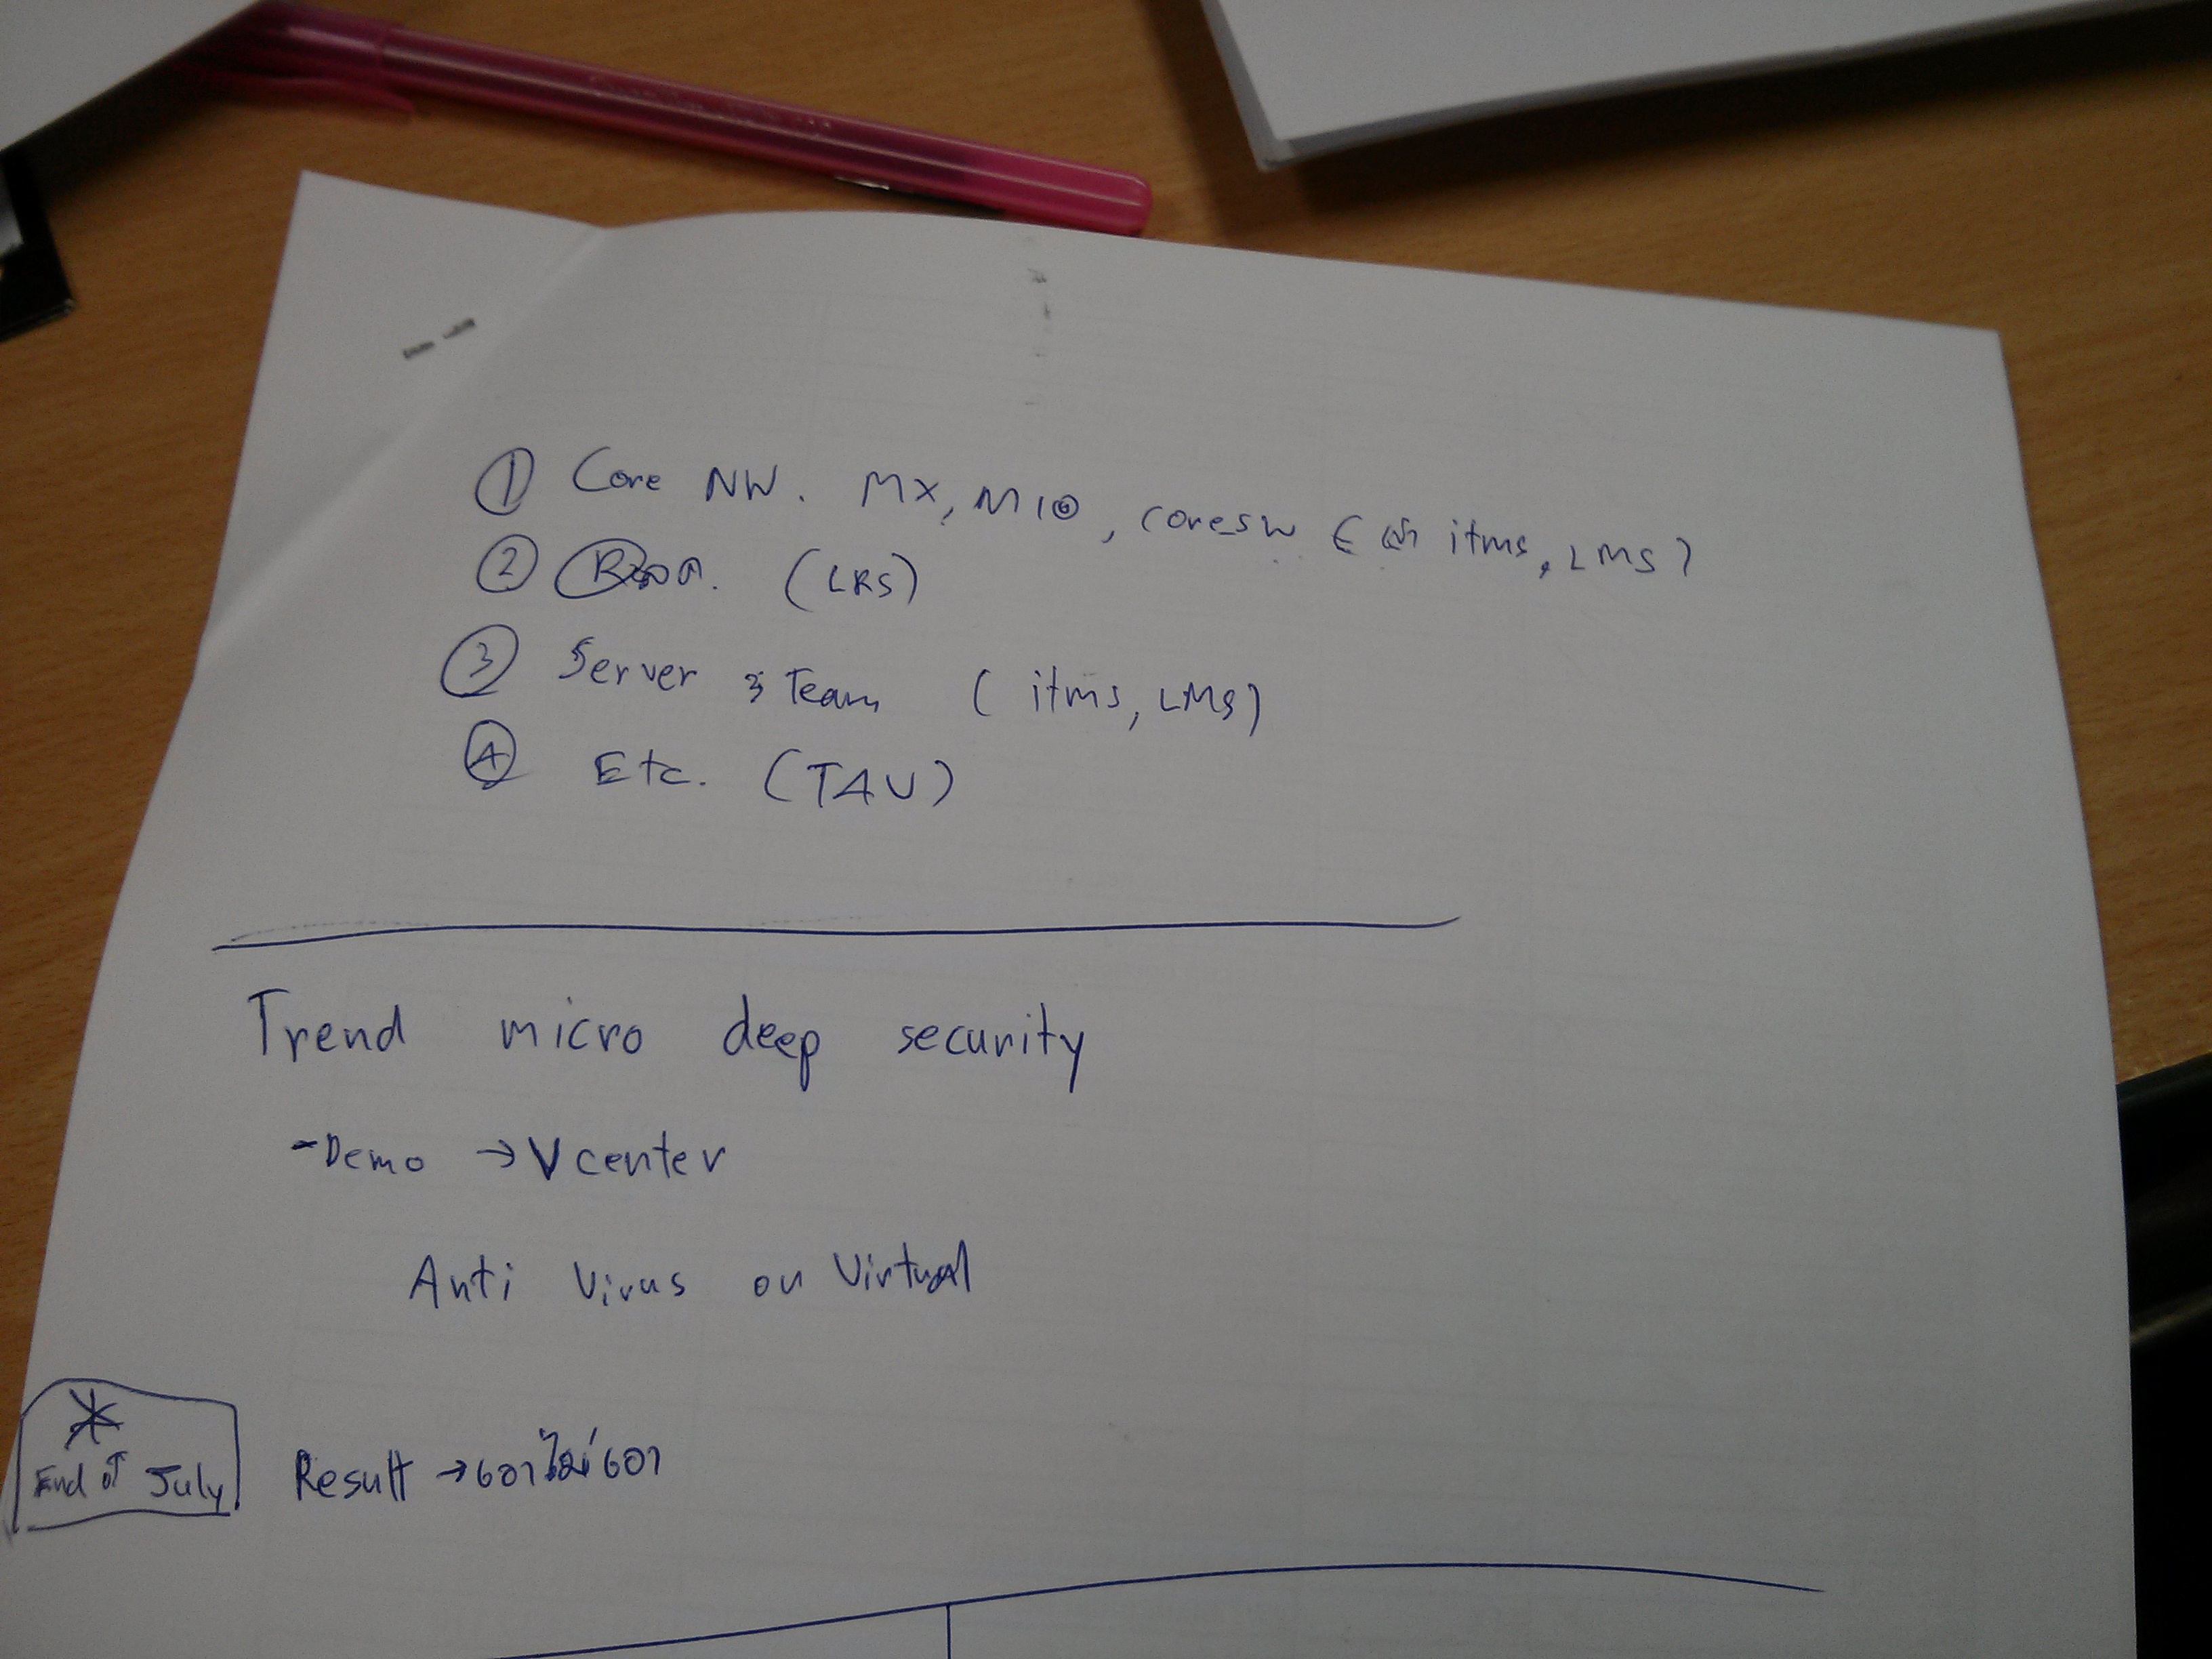 ① Core NW. MX, M10, coresw ( itms, LMS)
② (LRS)
③ Server 3 Team ( itms, LMS)
④ Etc. (TAV)
Trend micro deep security
-Demo → Vcenter
Anti Virus on Virtual
* End of July
Result → เอาไม่เอา